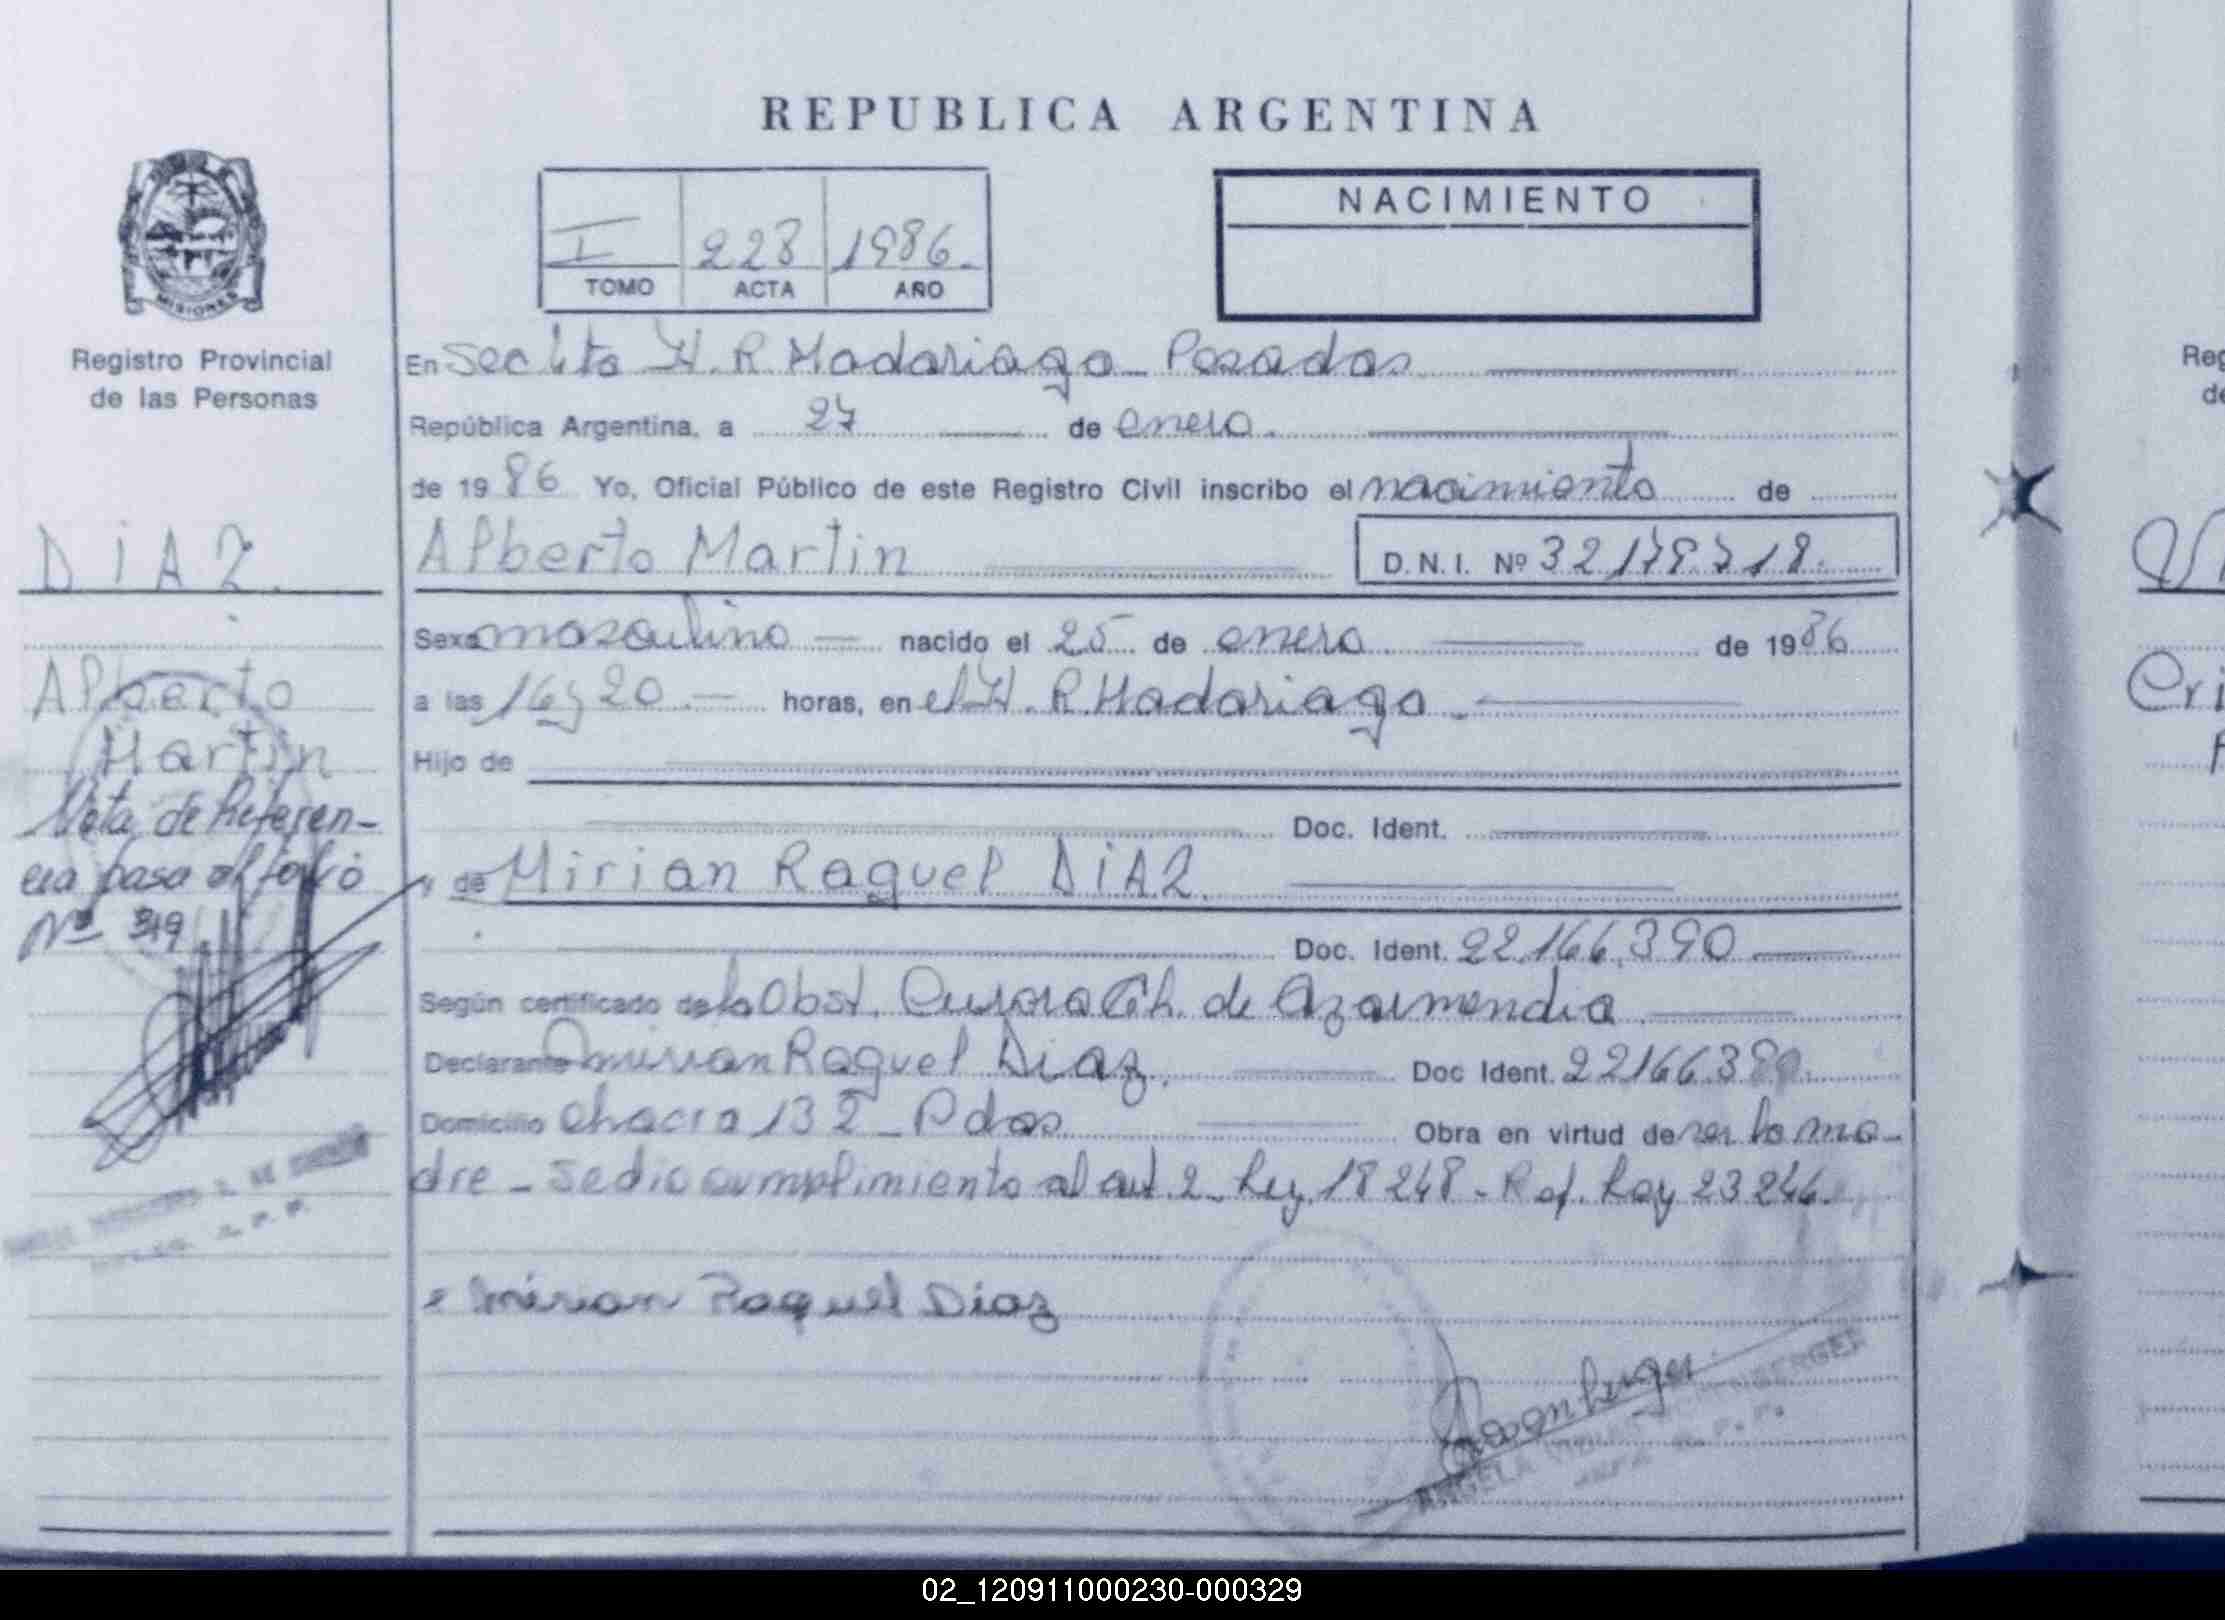 REPUBLICA ARGENTINA
MISIONES
Registro Provincial
de las Personas
I 228 1986.
TOMO ACTA AÑO
NACIMIENTO
En Sec h<sup>ta</sup> H. R Madariaga - Posadas
República Argentina, a 27 de enero.
de 1986 Yo, Oficial Público de este Registro Civil inscribo el nacimiento de
DIAZ.
Alberto Martin D.N.I. Nº 32178718.
Sexo masculino nacido el 25 de enero de 1986
Alberto
Martin
a las 16 y 20 horas, en el H. R. Madariaga
Hijo de
Nota de Referen-
cia pasa al folio
Nº 349
Doc. Ident.
y de Mirian Raquel DIAZ.
Doc. Ident. 22.166.390
Según certificado de la Obst. de Azarmendia
Declarante Mirian Raquel Diaz. Doc Ident. 22166390.
Domicilio chacra 132 - Pdas Obra en virtud de ser la ma-
dre - Se dio cumplimiento al art. 2 - Ley 18248 - Ref. Ley 23246.
Mirian Raquel Diaz
ANGELA
R. P. P.
Reg
de
Cri
02_120911000230-000329